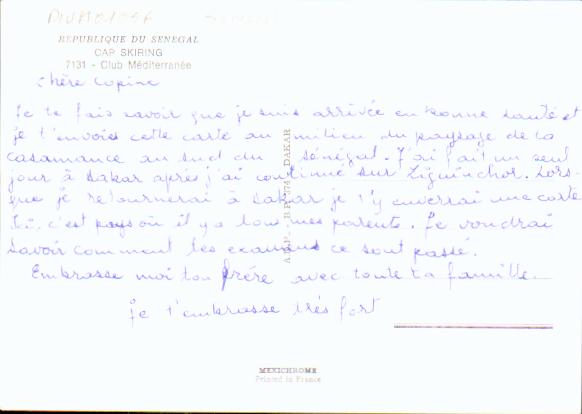 DIUM01056
REPUBLIQUE DU SENEGAL
CAP SKIRING
7131 - Club Méditerranée
chère copine
Je te fais savoir que je suis arrivée en bonne santé et
je t'envoie cette carte au milieu du paysage de la
casamance au sud du sénégal. J'ai fait un seul
jour à Dakar après j'ai continué sur Ziguinchor. Lors-
que je retournerai à Dakar je t'y enverrai une carte
Ici, c'est pays où il y a tous mes parents. Je voudrai
savoir comment les examens ce sont passé.
Embrasse moi ton frére avec toute ta famille
je t'embrasse trés fort
DAKAR
MEXICHROME
Printed in France